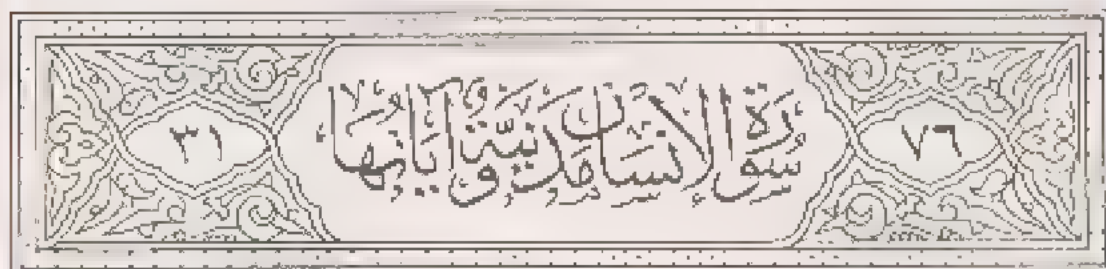 ٧٦ سُورَةُ الْإِنسَانِ مَدَنِيَّةٌ وَآيَاتُهَا ٣١